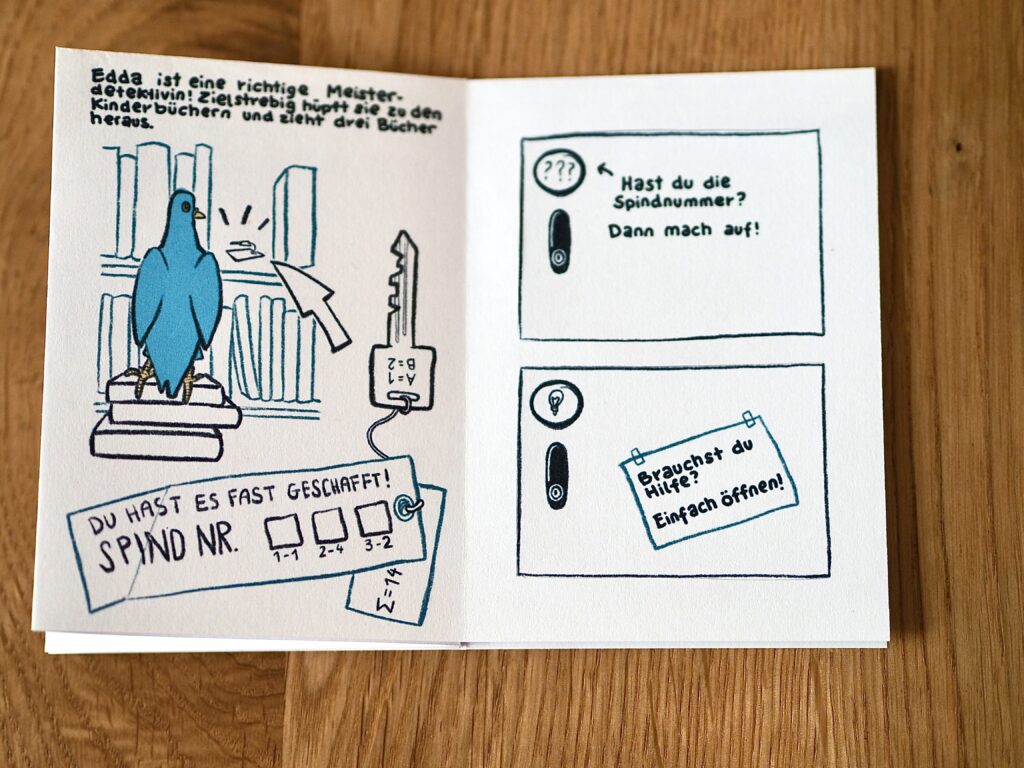 Edda ist eine richtige Meister-
detektivin! Zielstrebig hüpft sie zu den
Kinderbüchern und zieht drei Bücher
heraus.
A=1
B=2
DU HAST ES FAST GESCHAFFT!
SPIND NR.
1-1 2-4 3-2
Σ=14
???
Hast du die
Spindnummer?
Dann mach auf!
Brauchst du
Hilfe?
Einfach öffnen!